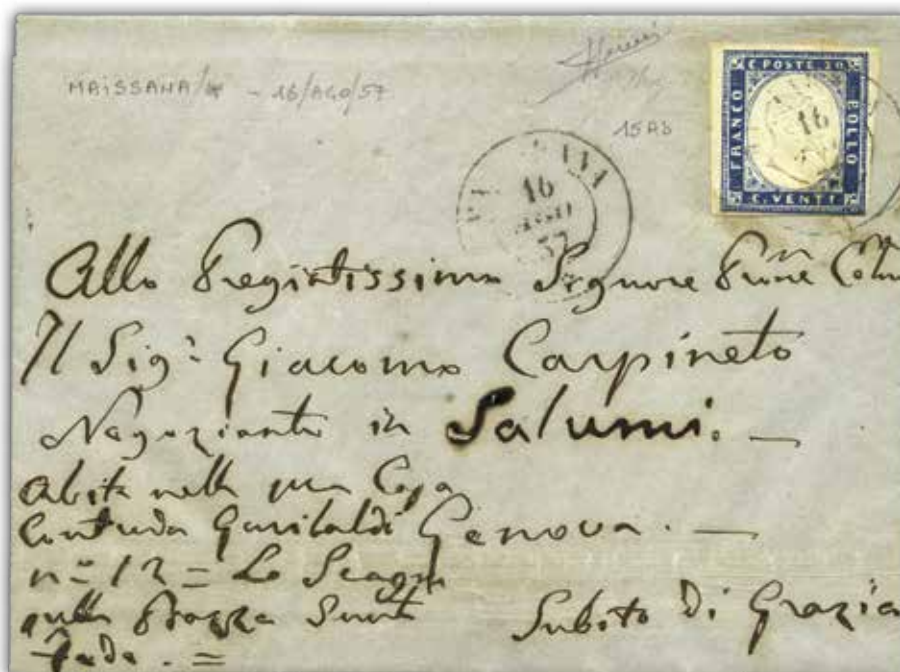 MAISSANA - 16/AGO/57
15Ab
C. POSTE 20.
FRANCO
BOLLO
C. VENTI
16
16
AGO
57
Allo Pregiatissimo Signore
Il Sig.r Giacomo Carpineto
Negoziante in Salumi.
Abita nella sua Casa
Contrada Garibaldi Genova.
n= 12 = Lo Scagno
sulla Piazza
Subito di Grazia